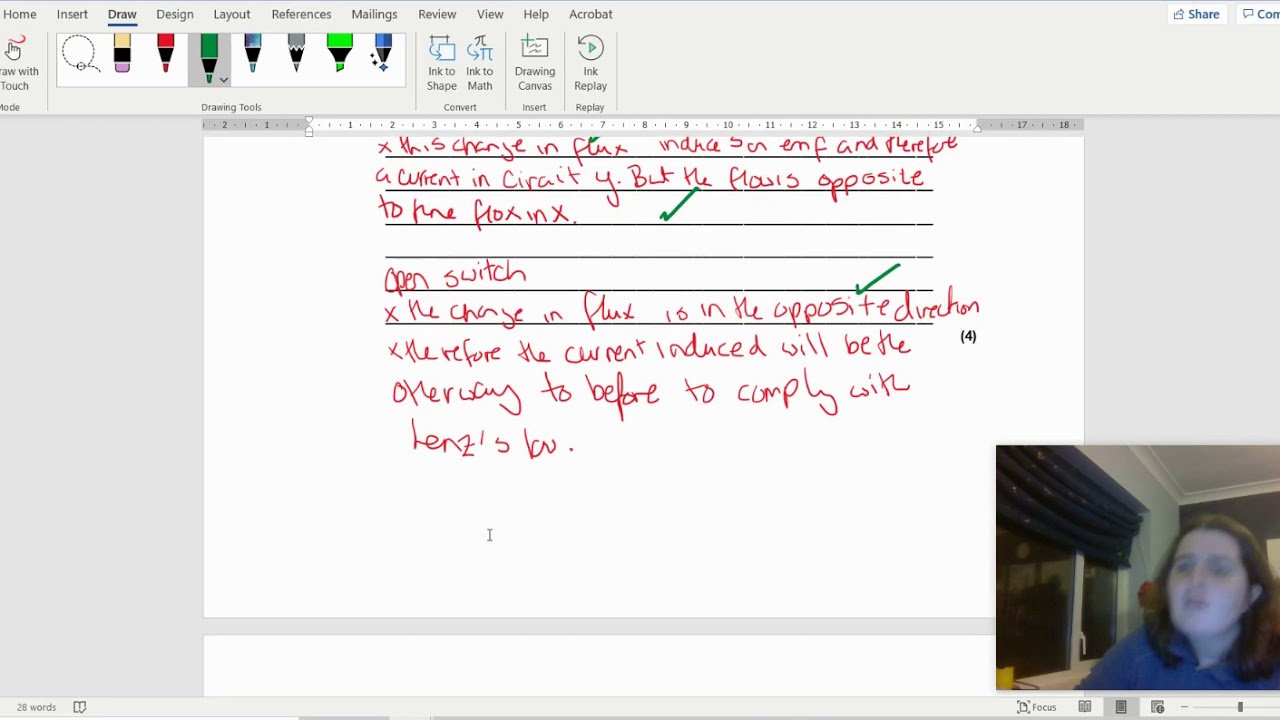 Home Insert Draw Design Layout References Mailings Review View Help Acrobat Share Com
raw with Touch
Ink to Shape Ink to Math Drawing Canvas Ink Replay
Mode Drawing Tools Convert Insert Replay
2 1 1 2 3 4 5 6 7 8 9 10 11 12 13 14 15 17 18
x this change in flux induces an emf and therefore
a current in Circuit y. But the flow is opposite
to the flox in X.
Open switch
x the change in flux is in the opposite direction
(4)
x therefore the current induced will be the
other way to before to comply with
Lenz's law.
28 words Focus